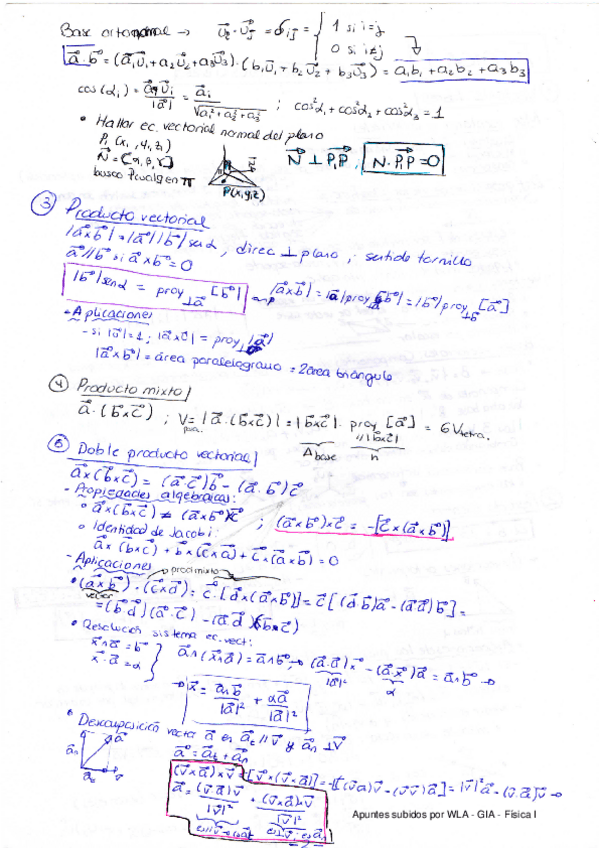 Base ortonormal → u⃗i · u⃗j = δij = { 1 si i=j
0 si i≠j
a⃗ · b⃗ = (a₁u⃗₁ + a₂u⃗₂ + a₃u⃗₃) · (b₁u⃗₁ + b₂u⃗₂ + b₃u⃗₃) = a₁b₁ + a₂b₂ + a₃b₃
cos(αi) = a⃗ u⃗i / |a⃗| = ai / √(a₁² + a₂² + a₃²) ; cos²α₁ + cos²α₂ + cos²α₃ = 1
• Hallar ec. vectorial normal del plano
P₁ (x₁, y₁, z₁)
N⃗ = (α, β, γ)
busco P cualq en π
P(x,y,z)
N⃗ ⊥ P₁P⃗ , N⃗ · P₁P⃗ = 0
③ Producto vectorial
|a⃗ x b⃗| = |a⃗| |b⃗| sen α , direc ⊥ plano ; sentido tornillo
a⃗ // b⃗ si a⃗ x b⃗ = 0
|b⃗| sen α = proy ⊥a⃗ [b⃗] → |a⃗ x b⃗| = |a⃗| proy ⊥a⃗ [b⃗] = |b⃗| proy ⊥b⃗ [a⃗]
- Aplicaciones
- si |a⃗| = 1 ;
|a⃗ x b⃗| = área paralelogramo = 2 área triángulo
④ Producto mixto
a⃗ · (b⃗ x c⃗) ; V = |a⃗ · (b⃗ x c⃗)| = |b⃗ x c⃗| · proy // |b⃗ x c⃗| [a⃗] = 6 Vtetra.
A base h
⑤ Doble producto vectorial
a⃗ x (b⃗ x c⃗) = (a⃗ · c⃗) b⃗ - (a⃗ · b⃗) c⃗
- Propiedades algebraicas:
• a⃗ x (b⃗ x c⃗) ≠ (a⃗ x b⃗) x c⃗ ; (a⃗ x b⃗) x c⃗ = -[c⃗ x (a⃗ x b⃗)]
• Identidad de Jacobi:
a⃗ x (b⃗ x c⃗) + b⃗ x (c⃗ x a⃗) + c⃗ x (a⃗ x b⃗) = 0
- Aplicaciones
prod mixto
• (a⃗ x b⃗) · (c⃗ x d⃗) = c⃗ · [d⃗ x (a⃗ x b⃗)] = c⃗ [(d⃗ b⃗) a⃗ - (d⃗ a⃗) b⃗] =
vector
= (b⃗ · d⃗)(a⃗ · c⃗) - (a⃗ d⃗)(b⃗ · c⃗)
• Resolución sistema ec. vect:
x⃗ ∧ a⃗ = b⃗
x⃗ · a⃗ = α
a⃗ ∧ (x⃗ ∧ a⃗) = a⃗ ∧ b⃗ → (a⃗ · a⃗) x⃗ - (a⃗ · x⃗) a⃗ = a⃗ ∧ b⃗ →
|a⃗|² α
→ x⃗ = a⃗ ∧ b⃗ / |a⃗|² + α a⃗ / |a⃗|²
• Descomposición vector a⃗ en a⃗t // v⃗ y a⃗n ⊥ v⃗
a⃗ = a⃗t + a⃗n
(v⃗ x a⃗) x v⃗ = -[v⃗ x (v⃗ x a⃗)] = -[(v⃗ a⃗) v⃗ - (v⃗ v⃗) a⃗] = |v⃗|² a⃗ - (v⃗ · a⃗) v⃗ →
a⃗ = (v⃗ a⃗) v⃗ / |v⃗|² + (v⃗ x a⃗) x v⃗ / |v⃗|²
Apuntes subidos por WLA - GIA - Física I